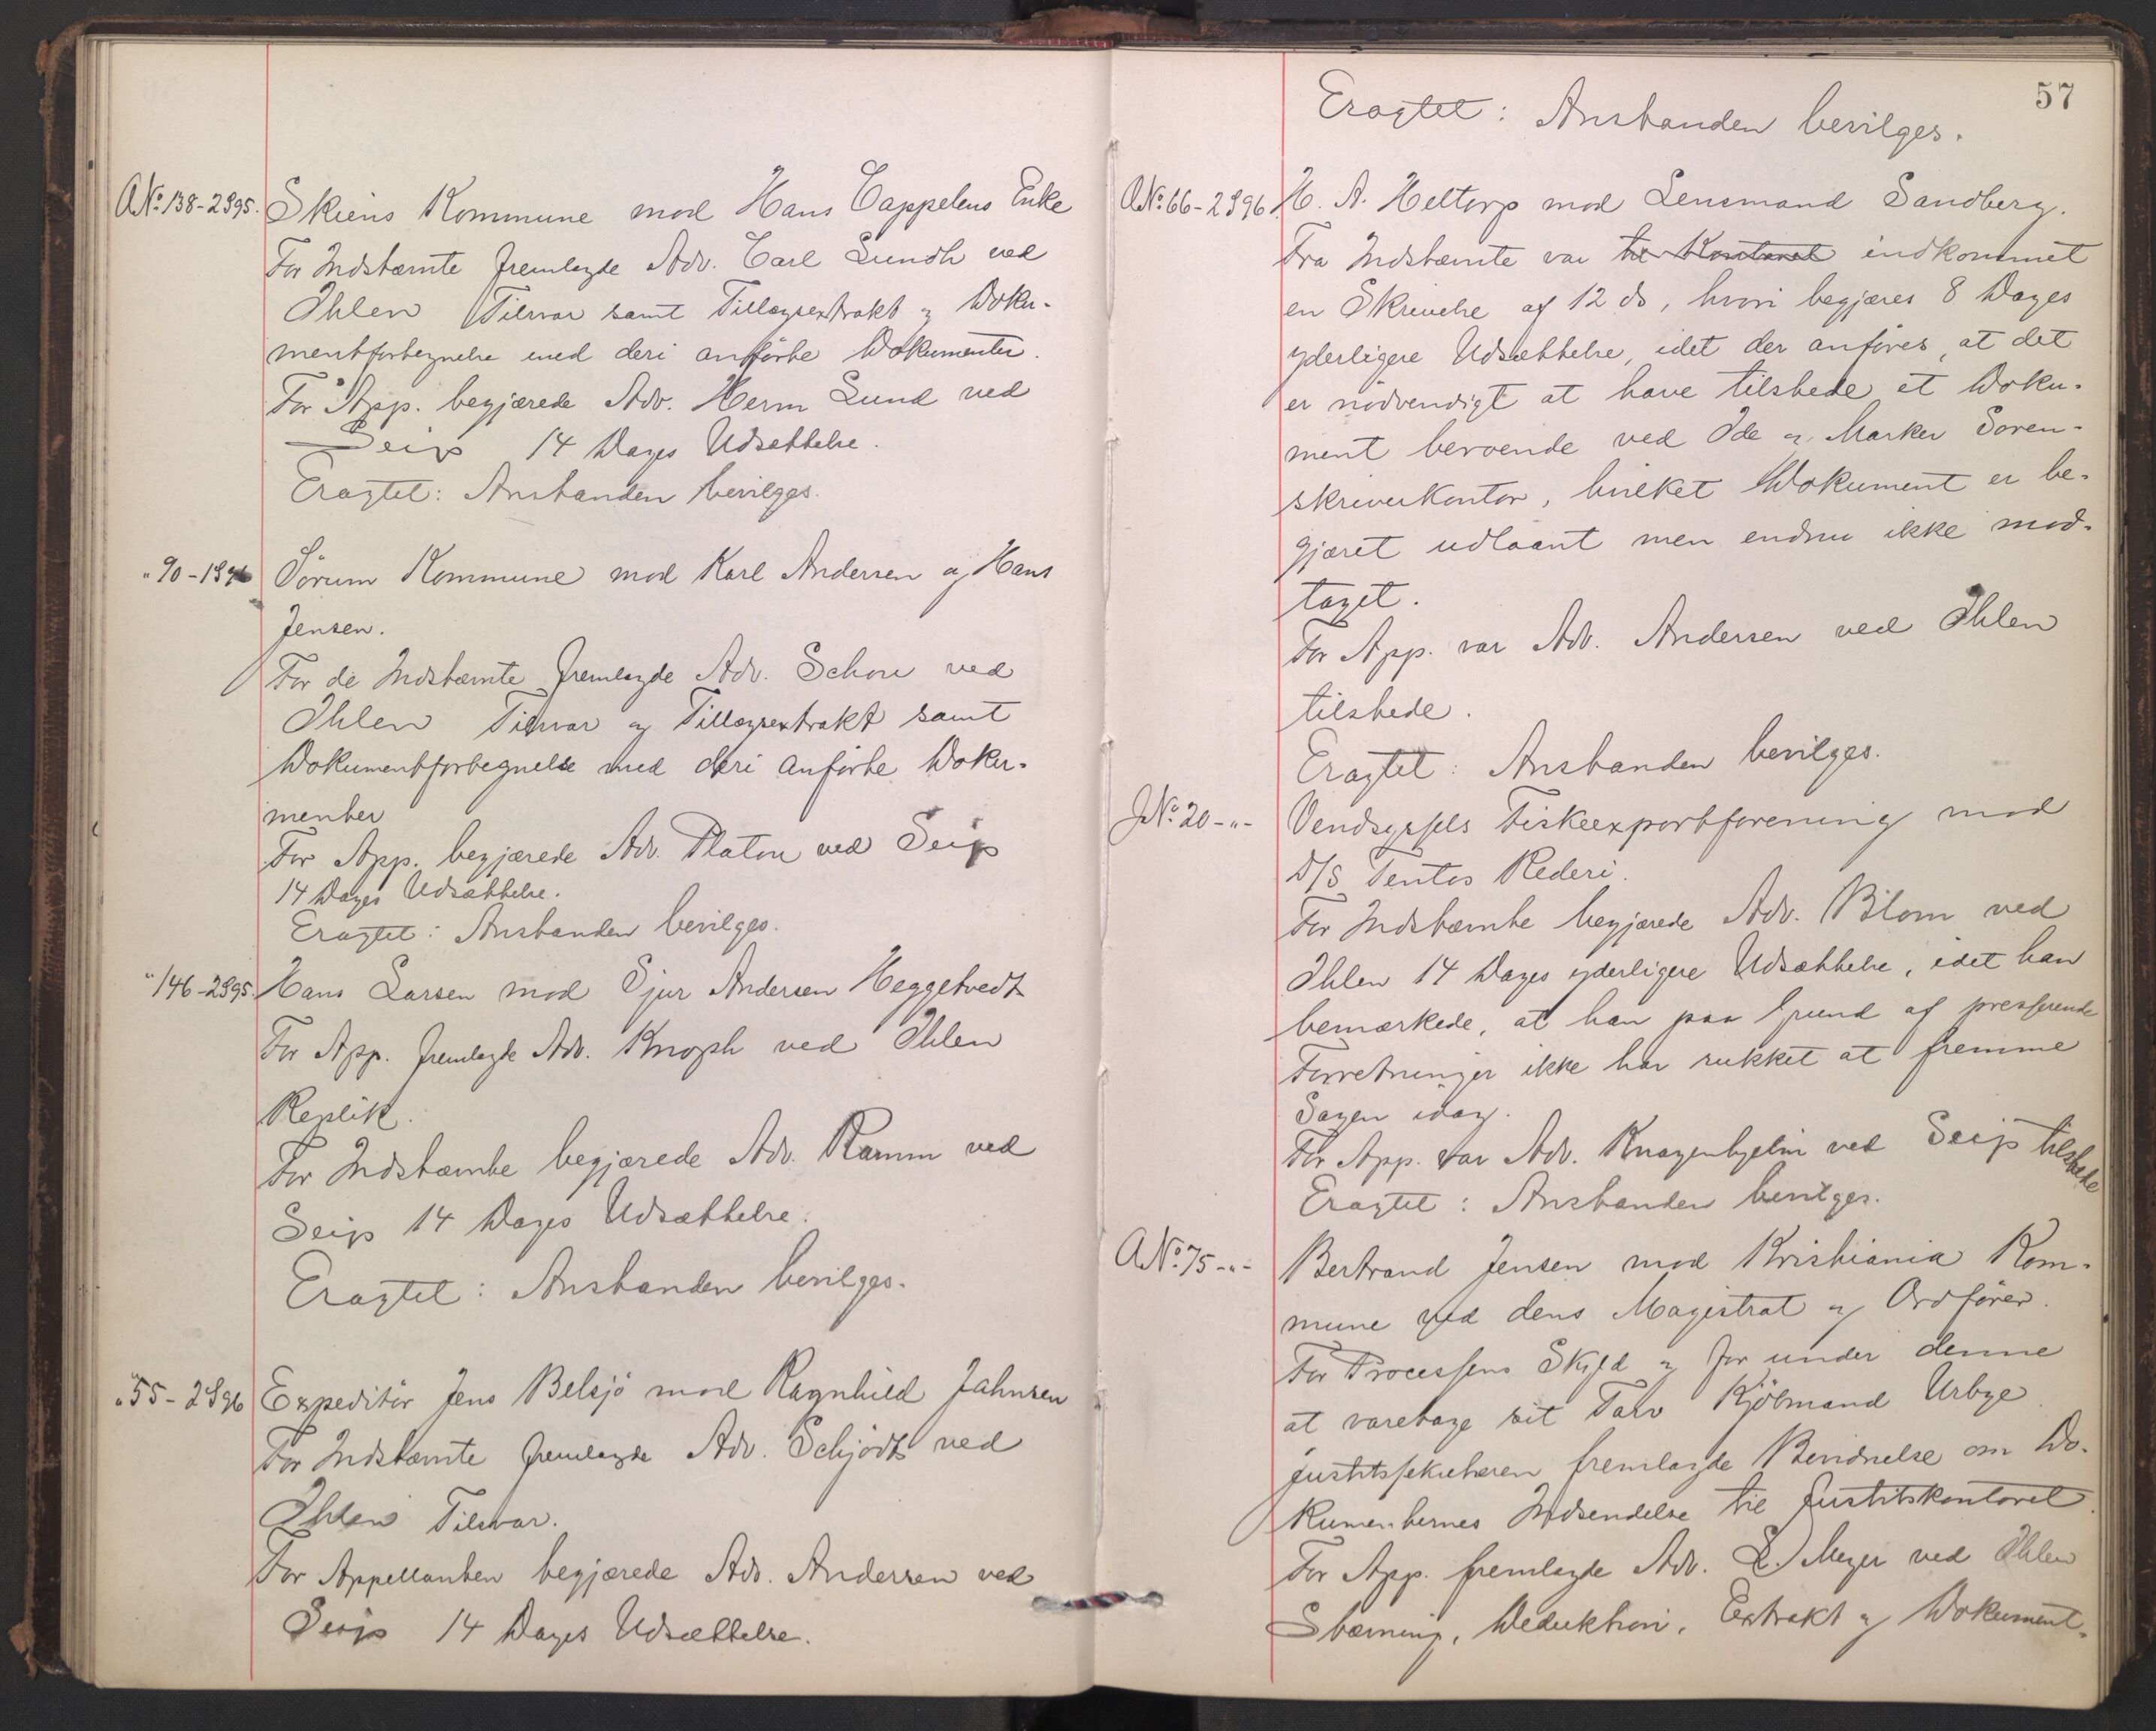 A No 138-2895. Skiens Kommune mod Hans Cappelens Enke
For Indstæmte fremlagde Adv. Carl Lundh ved
Ihlen Tilsvar samt Tillægsextrakt og Doku-
mentfortegnelse med deri anførte Dokumenter.
For App. begjærede Adv. Herm Lund ved
Seip 14 Dages Udsættelse.
Eragtet: Anstanden bevilges.
" 90-1896 Sørum Kommune mod Karl Andersen og Hans
Jensen.
For de Indstæmte fremlagde Adv. Schou ved
Ihlen Tilsvar og Tillægsextrakt samt
Dokumentfortegnelse med deri anførte Doku-
menter
For App. begjærede Adv. Platou ved Seip
14 Dages Udsættelse.
Eragtet: Anstanden bevilges.
" 146-2895. Hans Larsen mod Sjur Andersen Heggetvedt
For App. fremlagde Adv. Knoph ved Ihlen
Replik.
For Indstæmte begjærede Adv. Ramm ved
Seip 14 Dages Udsættelse.
Eragtet: Anstanden bevilges.
" 55-2896 Expeditør Jens Belsjö mod Ragnhild Jahnsen
For Indstæmte fremlagde Adv. Schjödt ved
Ihlen Tilsvar.
For Appellanten begjærede Adv. Andersen ved
Seip 14 Dages Udsættelse.
57
Eragtet: Anstanden bevilges.
A No 66-2896 H. A. Heltorp mod Lensmand Sandberg.
Fra Indstæmte var til Kontoret indkommet
en Skrivelse af 12 ds, hvori begjæres 8 Dages
yderligere Udsættelse, idet der anføres, at det
er nødvendigt at have tilstede et Doku-
ment beroende ved Ide og Marker Soren-
skriverkontor, hvilket Dokument er be-
gjæret udlaant men endnu ikke mod-
taget.
For App. var Adv. Andersen ved Ihlen
tilstede.
Eragtet: Anstanden bevilges.
J No 20-"- Vendsyssels Fiskeexportforening mod
D/S Tentos Rederi.
For Indstæmte begjærede Adv. Blom ved
Ihlen 14 Dages yderligere Udsættelse, idet han
bemærkede, at han paa Grund af presserende
Forretninger ikke har rukket at fremme
Sagen idag.
For App. var Adv. Knagenhjelm ved Seip tilstede
Eragtet: Anstanden bevilges.
A No 75-"- Bertrand Jensen mod Kristiania Kom-
mune ved dens Magistrat og Ordfører.
For Processens Skyld og for under denne
at varetage sit Tarv Kjöbmand Urbye.
Justitssekretæren fremlagde Bevidnelse om Do-
kumenternes Indsendelse til Justitskontoret.
For App. fremlagde Adv. L. Meyer ved Ihlen
Stævning, Deduktion, Extrakt og Dokument-